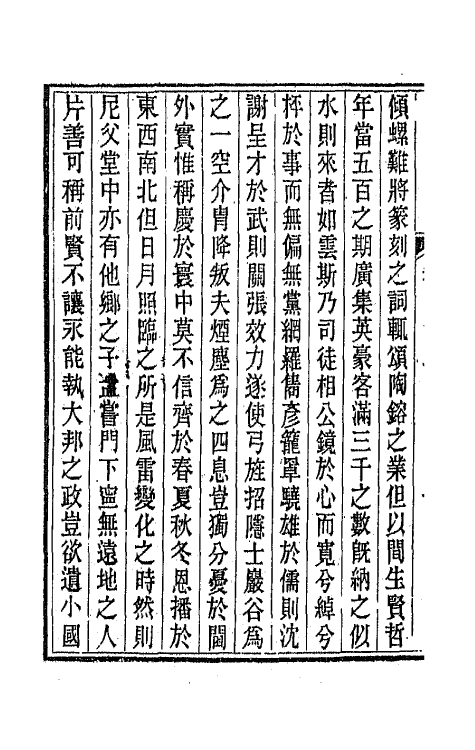 傾螺難將篆刻之詞輒頌陶鎔之業但以間生賢哲
年當五百之期廣集英豪客滿三千之數旣納之似
水則來者如雲斯乃司徒相公鏡於心而寬兮綽兮
秤於事而無偏無黨網羅儁彥籠罩驍雄於儒則沈
謝呈才於武則關張效力遂使弓旌招隱士巖谷爲
之一空介冑降叛夫煙塵爲之四息豈獨分憂於閫
外實惟稱慶於寰中莫不信齊於春夏秋冬恩播於
東西南北但日月照臨之所是風雷變化之時然則
尼父堂中亦有他鄉之子孟嘗門下寧無遠地之人
片善可稱前賢不讓永能執大邦之政豈欲遺小國